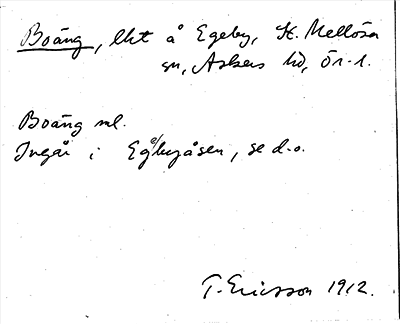 Boäng, lht å Egeby, St. Mellösa
sn, Askers hd, Ör. l.
Boäng ml.
Ingår i Egåbyåsen, se d.o.
T. Ericsson 1912.